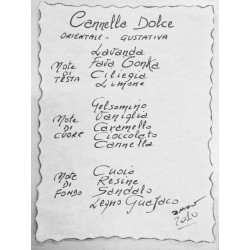 Cannella Dolce
ORIENTALE - GUSTATIVA
Lavanda
Note Fava Tonka
DI Ciliegia
TESTA Limone
Gelsomino
Note Vaniglia
DI Caramello
CUORE Cioccolato
Cannella
Cuoio
Note Resine
DI Sandalo
FONDO Legno Guajaco
anno
2010